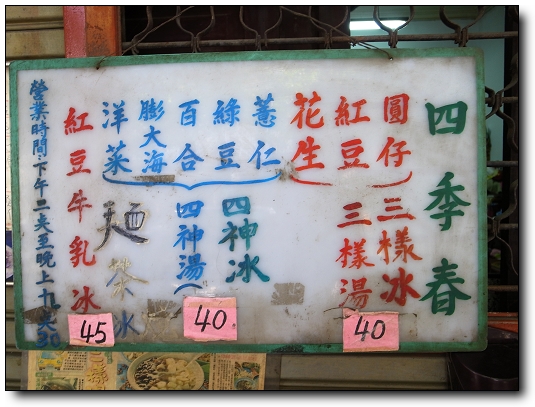 四季春
圓仔
紅豆
花生
三樣冰
三樣湯
40
薏仁
綠豆
百合
膨大海
洋菜
四神冰
四神湯
40
麵茶冰
紅豆牛乳冰
45
營業時間:下午二点至晚上十九点30